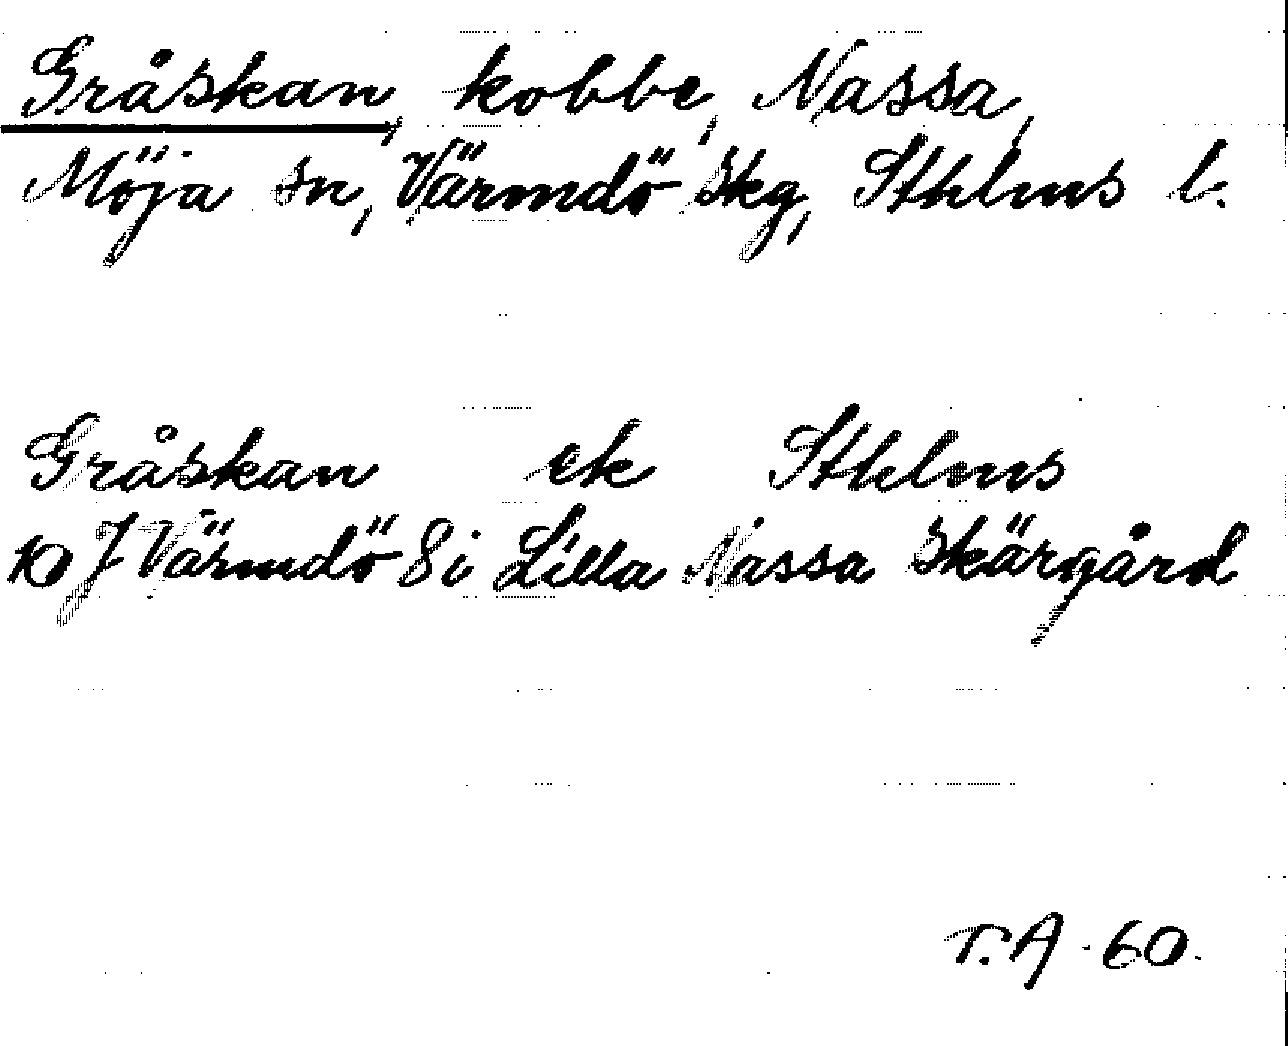 Gråskan, kobbe, Nassa,
Möja sn, Värmdö skg, Sthlms l.
Gråskan ek Sthlms
10 J Värmdö 8i Lilla Nassa Skärgård
T.A. 60.